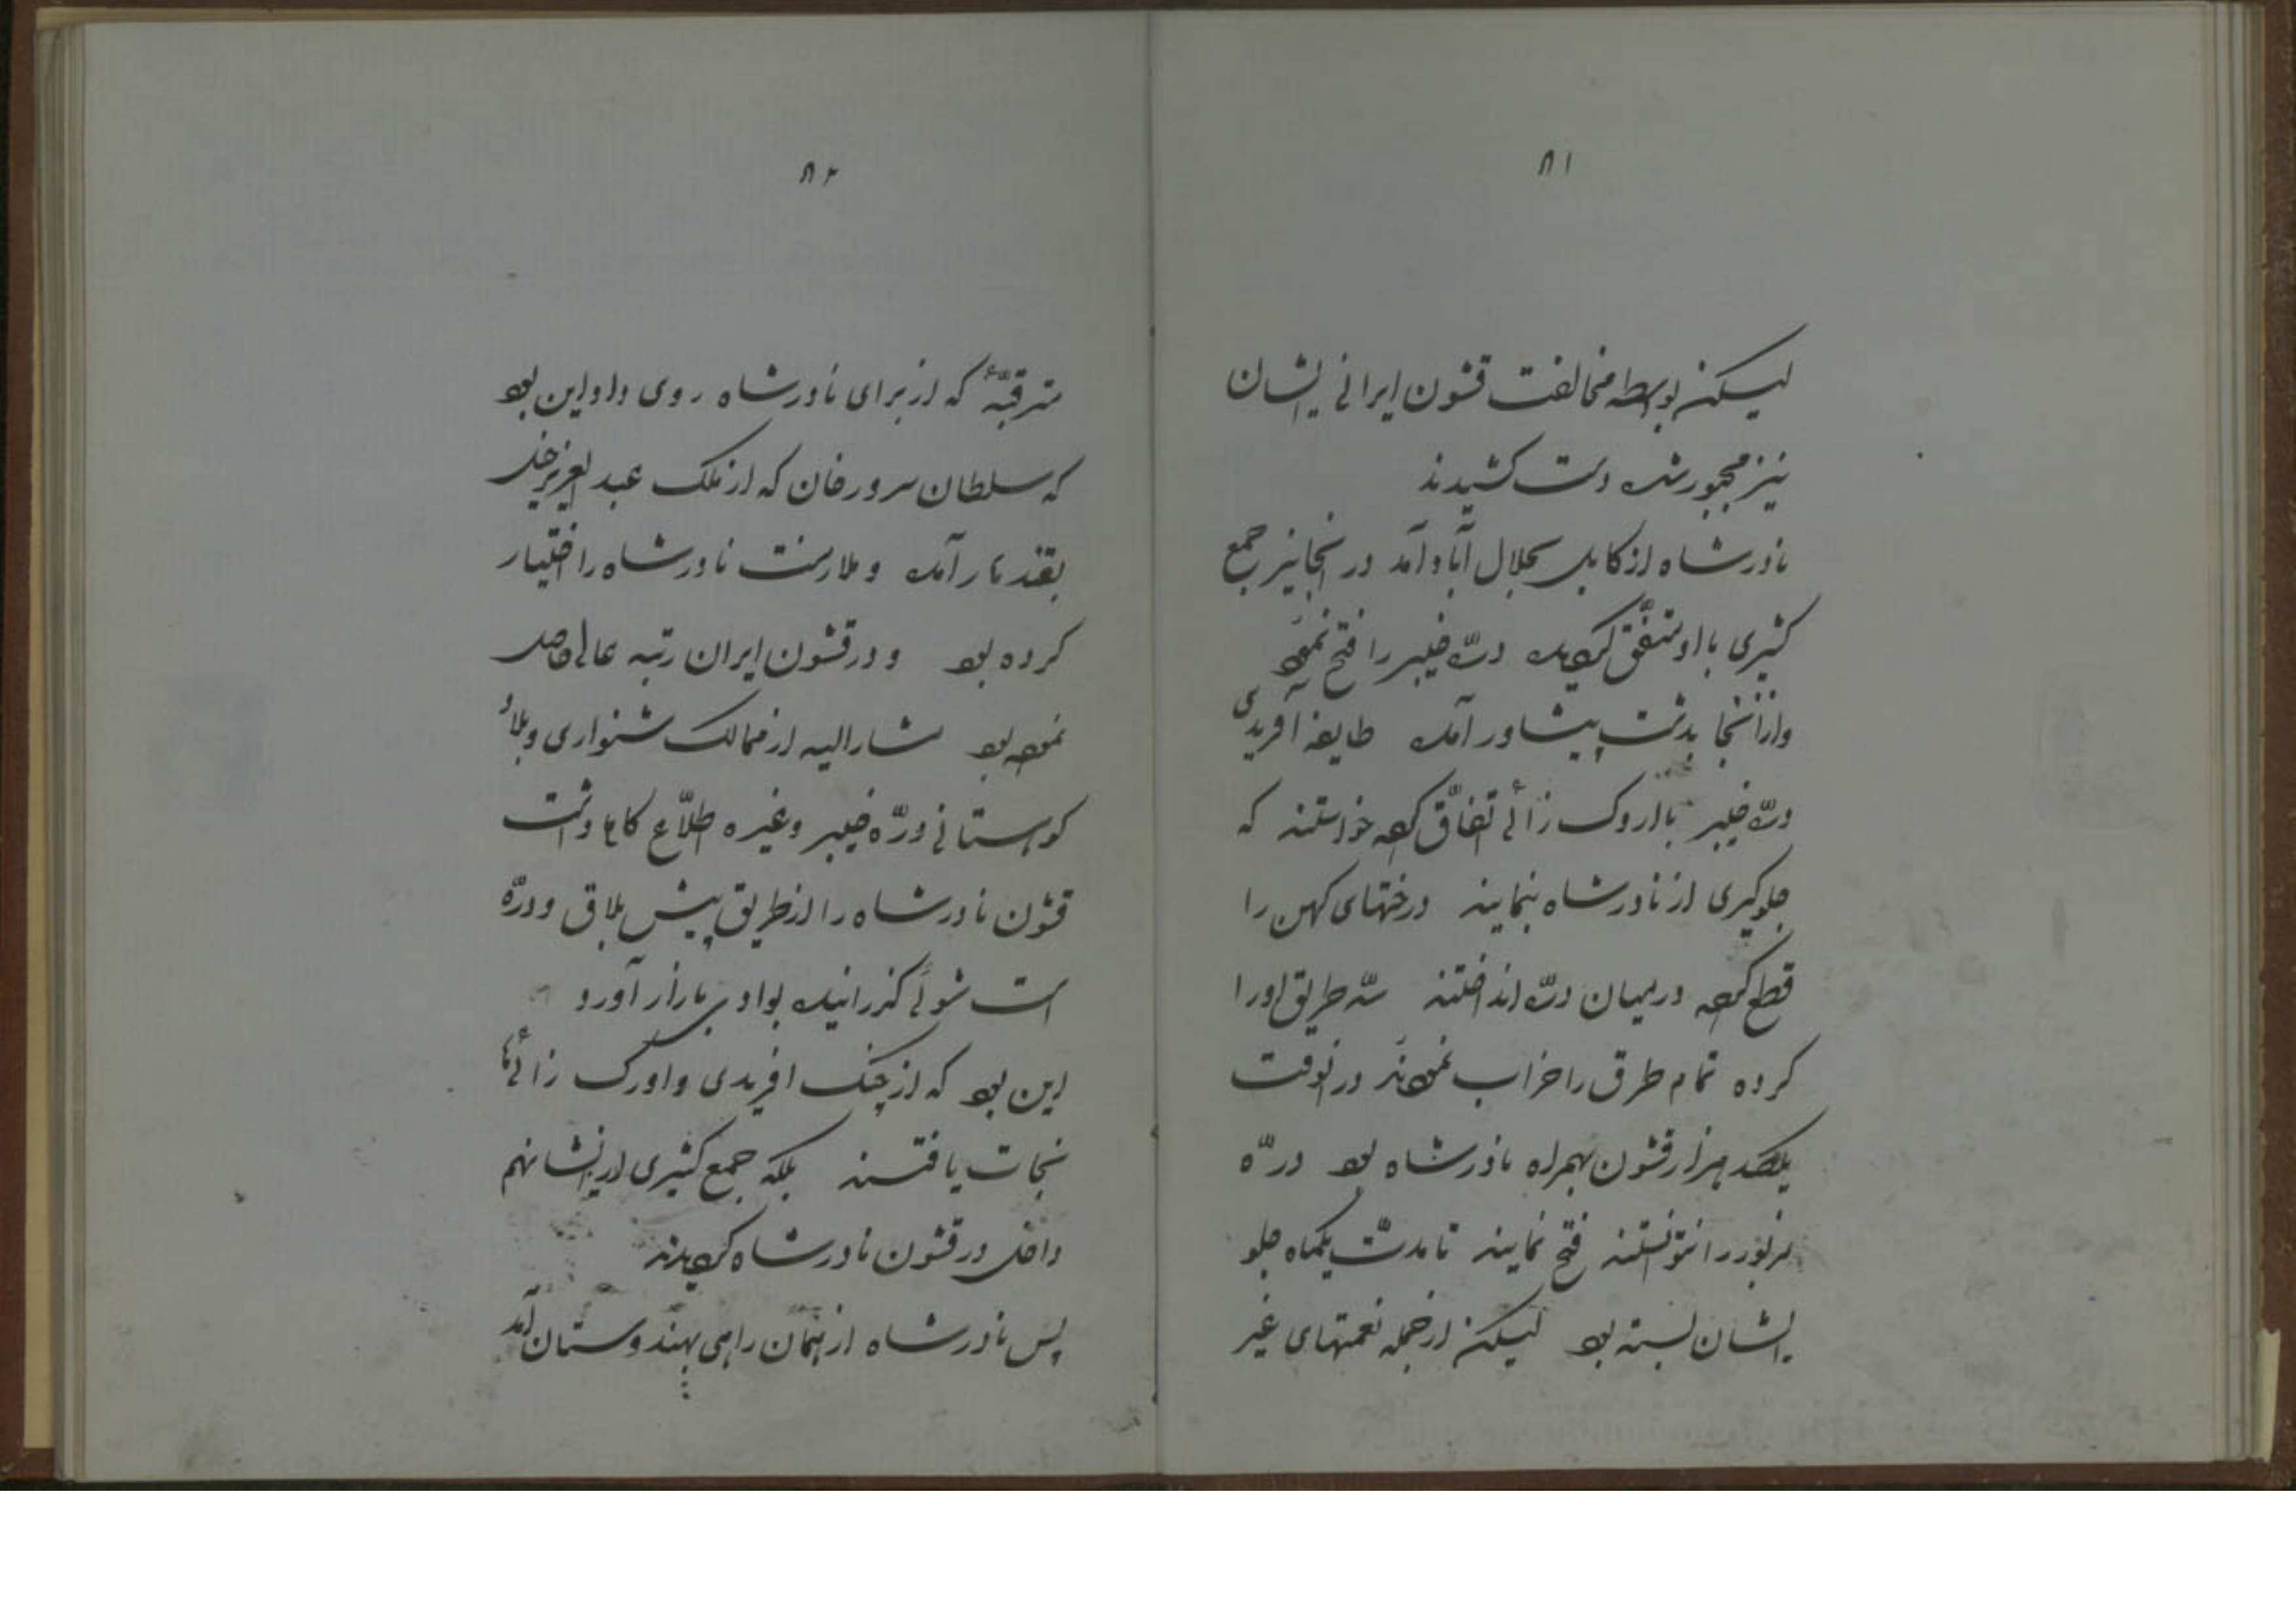 ۸۱
لیکن بواسطه مخالفت قشون ایرانی ایشان
نیز مجبور شده دست کشیدند
نادرشاه از کابل بجلال آباد آمد در آنجا نیز جمع
کثیری با او متفق گردیده درّه خیبر را فتح نموده
و از آنجا بدشت پیشاور آمده طایفه آفریدی
درّه خیبر با اروک زائی اتفاق کرده خواستند که
جلوگیری از نادرشاه بنمایند درختهای کهن را
قطع کرده در میان درّه انداختند سدّ طریق او را
کرده تمام طرق را خراب نمودند در آنوقت
یکصد هزار قشون بهمراه نادرشاه بود درّه
مزبور را نتوانستند فتح نمایند تا مدت یکماه جلو
ایشان بسته بود لیکن از جمله نعمتهای غیر
۸۲
مترقبّهٔ که از برای نادرشاه روی داد این بود
که سلطان سرور خان که از ملک عبد العزیز خل
بقندهار آمده و ملازمت نادرشاه را اختیار
کرده بود و در قشون ایران رتبه عالی حاصل
نموده بود مشارالیه از ممالک شنواری و بلاد
کوهستانی و درّه خیبر و غیره اطلاّع کامل داشت
قشون نادرشاه را از طریق پیش بلاق و درّه
شوئی گذرانیده بوادی بازار آورد
این بود که از چنگ افریدی و اورک زائی‌ها
نجات یافتند بلکه جمع کثیری از ایشانهم
داخل در قشون نادرشاه گردیدند
پس نادرشاه از همان راهی بهندوستان آمد